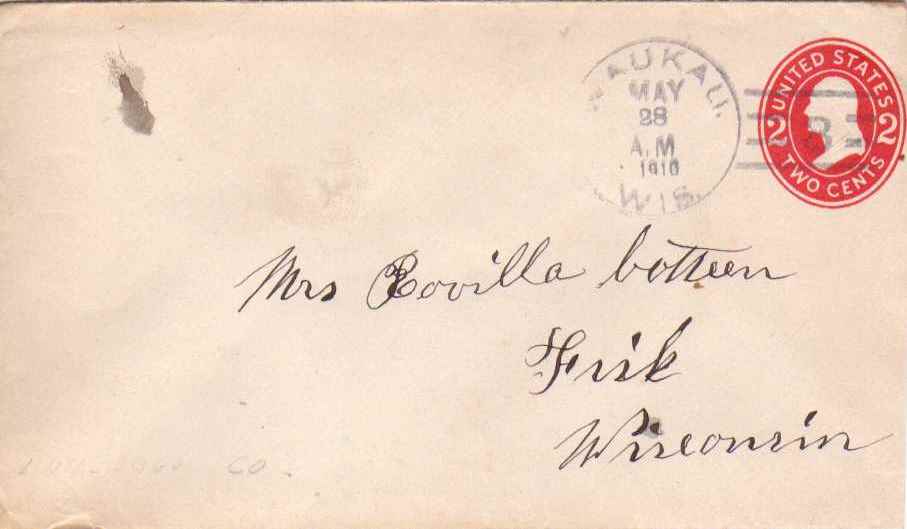 WAUKAU.
MAY
28
A.M
1910
WIS.
UNITED STATES
2 2
TWO CENTS
3
Mrs Rovilla botteen
Fisk
Wisconsin
CO.